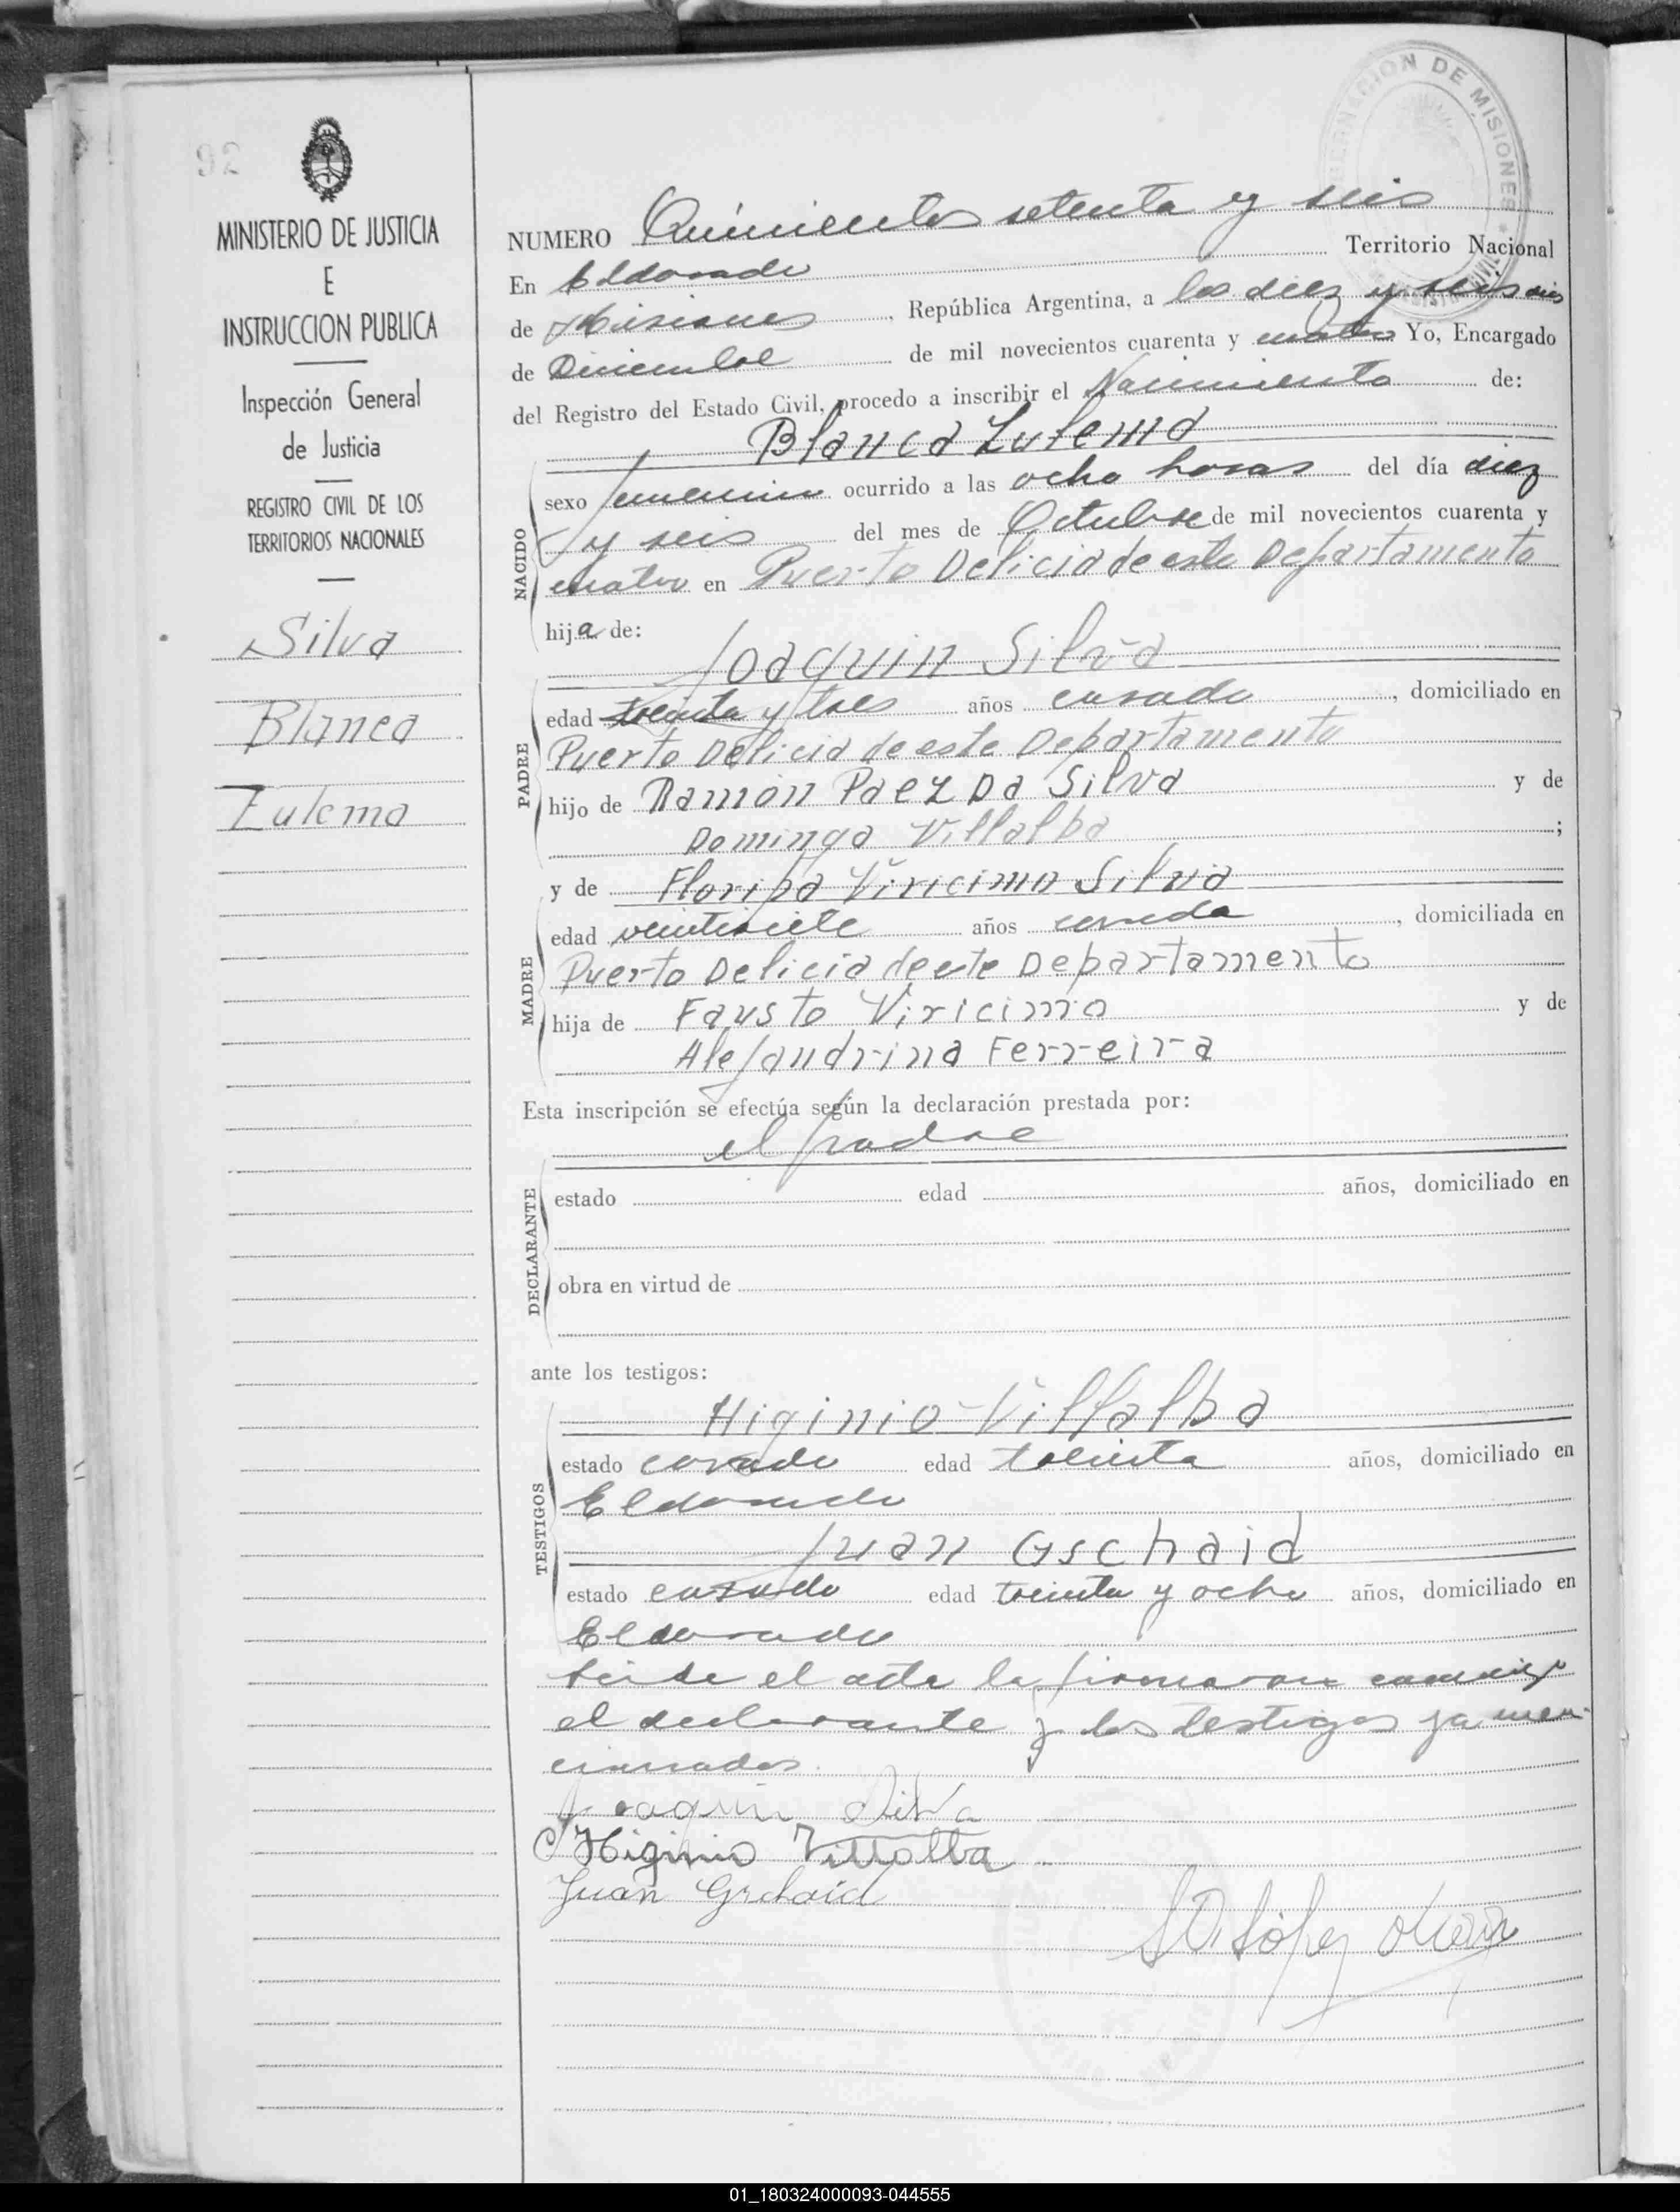 GOBERNACION DE MISIONES
92
MINISTERIO DE JUSTICIA
E
INSTRUCCION PUBLICA
Inspección General
de Justicia
REGISTRO CIVIL DE LOS
TERRITORIOS NACIONALES
Silva
Blanca
Zulema
NUMERO Quinientos setenta y seis
En Eldorado Territorio Nacional
de Misiones, República Argentina, a los diez y seis dias
de Diciembre de mil novecientos cuarenta y cuatro Yo, Encargado
del Registro del Estado Civil, procedo a inscribir el Nacimiento de:
Blanca Zulema
NACIDO
sexo femenino ocurrido a las ocho horas del día diez
y seis del mes de Octubre de mil novecientos cuarenta y
cuatro en Puerto Delicia de este Departamento
hija de:
Joaquin Silva
PADRE
edad treinta y tres años casado, domiciliado en
Puerto Delicia de este Departamento
hijo de Ramón Paez Da Silva y de
Dominga Villalba;
y de Floripa Viricimo Silva
MADRE
edad veintisiete años casada, domiciliada en
Puerto Delicia de este Departamento
hija de Fausto Viricimo y de
Alejandrina Ferreira
Esta inscripción se efectúa según la declaración prestada por:
el padre
DECLARANTE
estado edad años, domiciliado en
obra en virtud de
ante los testigos:
Higinio Villalba
TESTIGOS
estado casado edad treinta años, domiciliado en
Eldorado
Juan Gschaid
estado casado edad treinta y ocho años, domiciliado en
Eldorado
Leida el acta la firmaron conmigo
el declarante y los testigos ya men-
cionados.
Joaquin Silva
Higinio Villalba
Juan Gschaid
López
01_180324000093-044555